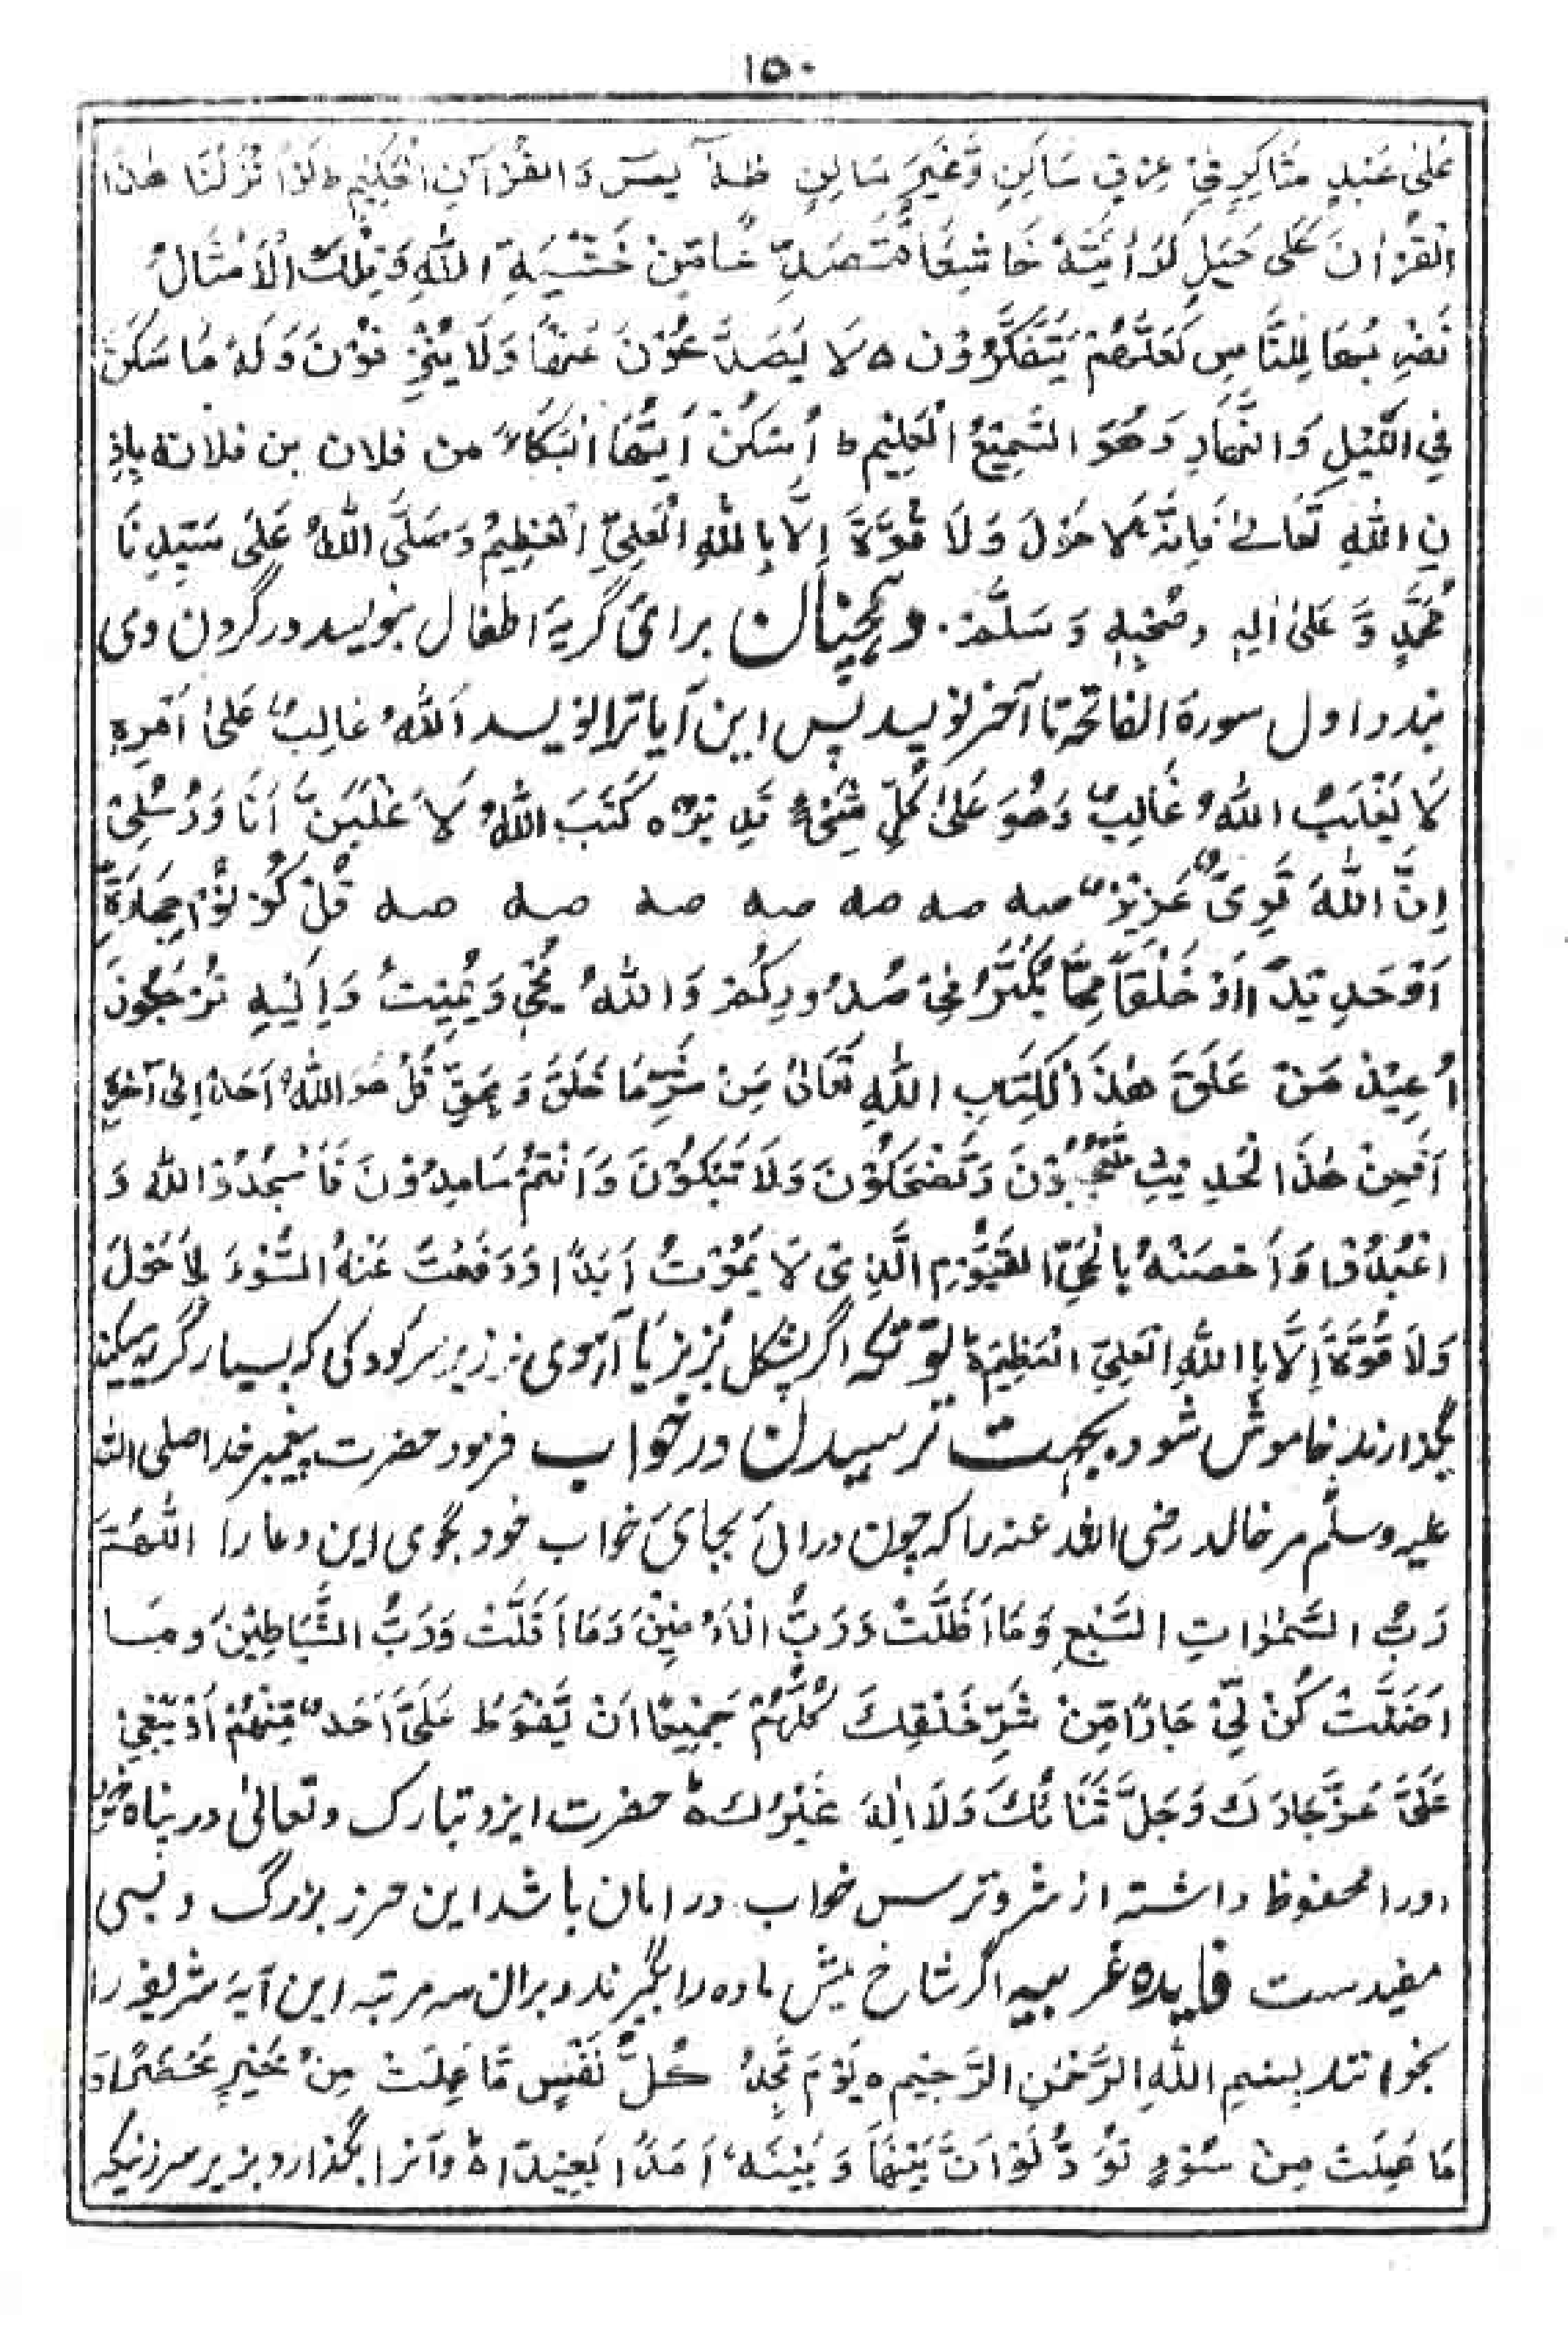 ١٥٠
عَلٰى عَبْدٍ شَاكِرٍ فِيْ عِرْقٍ سَاكِنٍ وَّغَيْرِ سَاكِنٍ طٰهٰ يٰسٓ وَالْقُرْآنِ الْحَكِيْمِ ط لَوْ اَنْزَلْنَا هٰذَا
الْقُرْاٰنَ عَلٰى جَبَلٍ لَرَاَيْتَهٗ خَاشِعًا مُّتَصَدِّعًا مِّنْ خَشْيَةِ اللهِ وَتِلْكَ الْاَمْثَالُ
نَضْرِبُهَا لِلنَّاسِ لَعَلَّهُمْ يَتَفَكَّرُوْنَ ٥ لَا يُصَدَّعُوْنَ عَنْهَا وَلَا يُنْزِفُوْنَ وَلَهٗ مَا سَكَنَ
فِي الَّيْلِ وَالنَّهَارِ وَهُوَ السَّمِيْعُ الْعَلِيْمِ ط اُسْكُنْ اَيُّهَا الْبُكَاءُ من فلان بن فلانة بِاِذْ
نِ اللهِ تَعَالٰى فَاِنَّهٗ لَا حَوْلَ وَلَا قُوَّةَ اِلَّا بِاللهِ الْعَلِيِّ الْعَظِيْمِ وَصَلَّى اللهُ عَلٰى سَيِّدِنَا
مُحَمَّدٍ وَّ عَلٰى اٰلِهٖ وَصَحْبِهٖ وَسَلَّمَ. وهمچنان برای گریۀ اطفال بنویسد در گردن وی
بندد اول سورة الفاتحه تا آخر نویسد پس این آیات را نویسد اَللهُ غَالِبٌ عَلٰى اَمْرِهٖ
لَا يَغْلِبُ اللهُ غَالِبٌ وَهُوَ عَلٰى كُلِّ شَيْءٍ قَدِيْرٌ ٥ كَتَبَ اللهُ لَاَغْلِبَنَّ اَنَا وَرُسُلِيْ
اِنَّ اللهَ قَوِيٌّ عَزِيْزٌ صه صه صه صه صه صه صه صه قُلْ كُوْنُوْا حِجَارَةً
اَوْ حَدِيْدًا اَوْ خَلْقًا مِّمَّا يَكْبُرُ فِيْ صُدُوْرِكُمْ وَاللهُ يُحْيٖ وَيُمِيْتُ وَاِلَيْهِ تُرْجَعُوْنَ
اُعِيْذُ مَنْ عَلَقَ هٰذَا الْكِتَابِ اللهِ تَعَالٰى مِنْ شَرِّ مَا خَلَقَ وَ بِحَقِّ قُلْ هُوَ اللهُ اَحَدٌ اِلٰى آخِرِهٖ
اَفَمِنْ هٰذَا الْحَدِيْثِ تَعْجَبُوْنَ وَتَضْحَكُوْنَ وَلَا تَبْكُوْنَ وَاَنْتُمْ سَامِدُوْنَ فَاسْجُدُوْا لله وَ
اعْبُدُوْا وَاَحْصَنْتُهٗ بِالْحَيِّ الْقَيُّوْمِ الَّذِيْ لَا يَمُوْتُ اَبَدًا وَدَفَعْتُ عَنْهُ السُّوْءَ بِلَا حَوْلَ
وَلَا قُوَّةَ اِلَّا بِاللهِ الْعَلِيِّ الْعَظِيْمِ ٥ اگر پشکل بزیر یا آدمی زیر سر کودکی که بسیار گریه میکند
بگذارند خاموش شود. بجهت ترسیدن در خواب فرمود حضرت پیغمبر خدا صلی الله
علیه وسلم مر خالد رضی الله عنه را که چون در آئی بجای خواب خود بگوی این دعا را اللّٰهُمَّ
رَبَّ السَّمٰوَاتِ السَّبْعِ وَمَا اَظَلَّتْ وَرَبَّ الْاَرَضِيْنَ وَمَا اَقَلَّتْ وَرَبَّ الشَّيَاطِيْنَ وَمَا
اَضَلَّتْ كُنْ لِّيْ جَارًا مِّنْ شَرِّ خَلْقِكَ كُلِّهِمْ جَمِيْعًا اَنْ يَّفْرُطَ عَلَيَّ اَحَدٌ مِّنْهُمْ اَوْ يَّبْغِيَ
عَلَيَّ عَزَّ جَارُكَ وَجَلَّ ثَنَائُكَ وَلَا اِلٰهَ غَيْرُكَ ٥ حضرت ایزد تبارک و تعالی در پناه خویش
او را محفوظ داشته از شر و ترس خواب در امان باشد این حرز بزرگ و بسی
مفیدست فایده غریبه اگر شاخ میش ماده را بگیرند و بران سه مرتبه این آیۀ شریفه را
بخوانند بِسْمِ اللهِ الرَّحْمٰنِ الرَّحِيْمِ ٥ يَوْمَ تَجِدُ كُلُّ نَفْسٍ مَّا عَمِلَتْ مِنْ خَيْرٍ مُّحْضَرًا وَّ
مَا عَمِلَتْ مِنْ سُوْءٍ تَوَدُّ لَوْ اَنَّ بَيْنَهَا وَ بَيْنَهٗ اَمَدًا بَعِيْدًا ٥ و آنرا بگذارد بزیر سر زنیکه